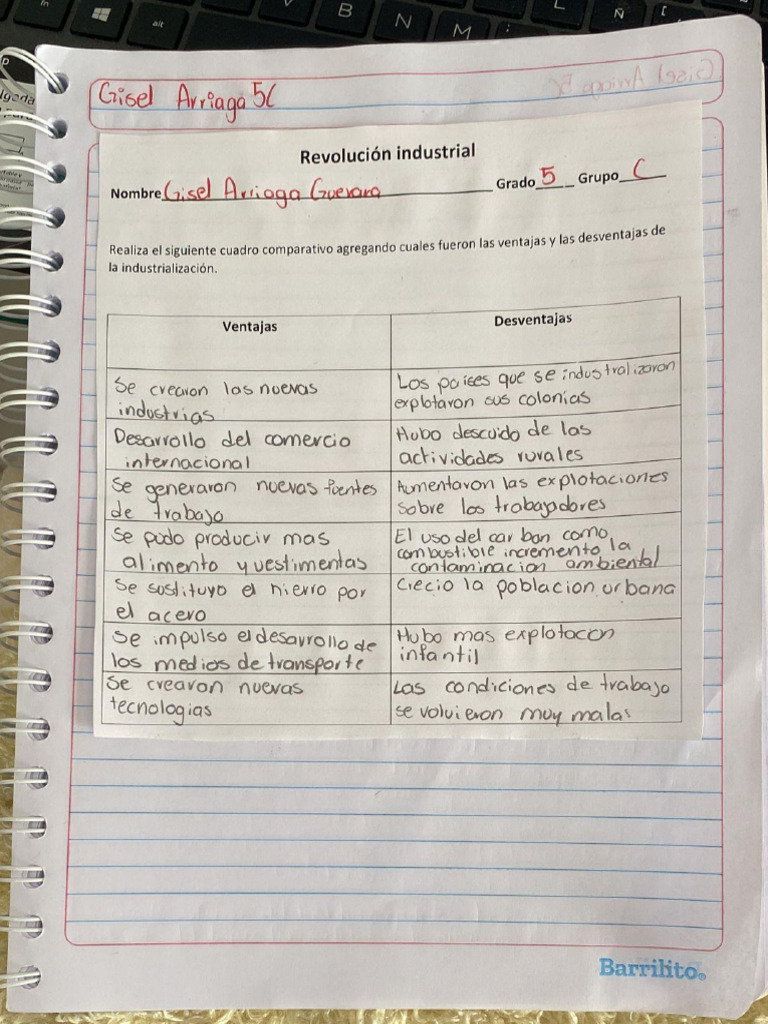 Gisel Arriaga 5C
Revolución industrial
Nombre Gisel Arriaga Guevara Grado 5 Grupo C
Realiza el siguiente cuadro comparativo agregando cuales fueron las ventajas y las desventajas de
la industrialización.
Ventajas
Desventajas
Se crearon las nuevas
industrias
Los paises que se industralizaron
explotaron sus colonias
Desarrollo del comercio
internacional
Hubo descuido de las
actividades rurales
Se generaron nuevas fuentes
de trabajo
Aumentaron las explotaciones
sobre los trabajadores
Se pudo producir mas
alimento y vestimentas
El uso del carbon como
combustible incremento la
contaminacion ambiental
Se sustituyo el hierro por
el acero
Crecio la poblacion urbana
Se impulso el desarrollo de
los medios de transporte
Hubo mas explotacon
infantil
Se crearon nuevas
tecnologias
Las condiciones de trabajo
se volvieron muy malas
Barrilito
B
N
M
Ñ
L
V
alt
fn